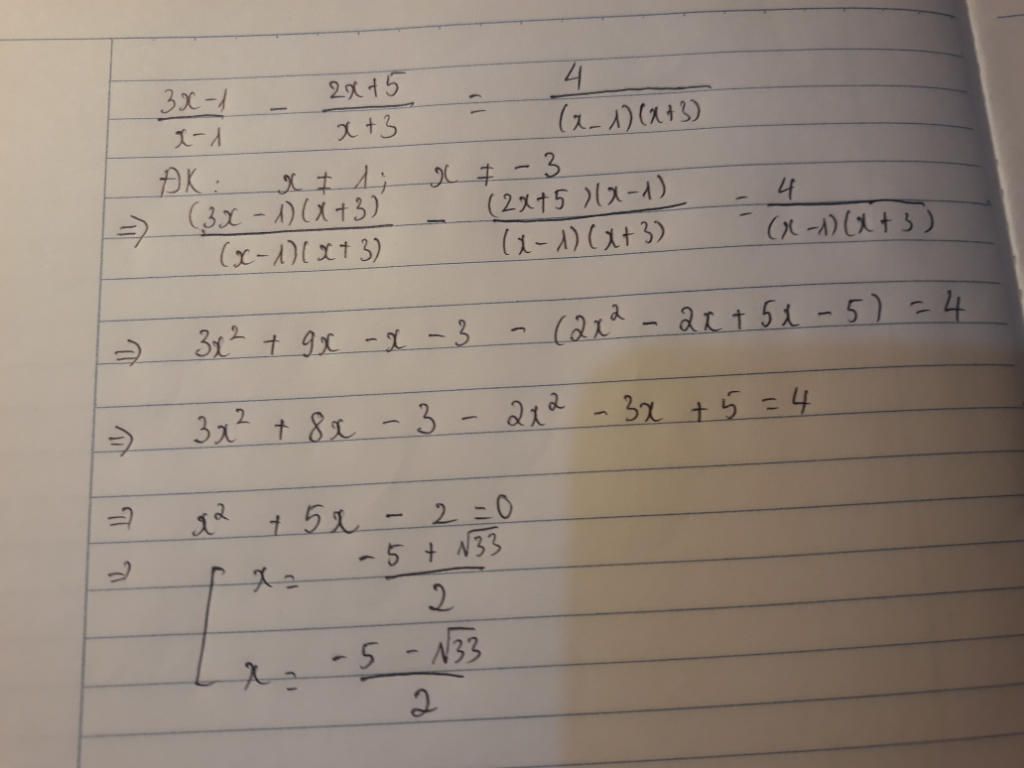 (3x-1)/(x-1) - (2x+5)/(x+3) = 4/((x-1)(x+3))
ĐK: x ≠ 1; x ≠ -3
=> ((3x-1)(x+3))/((x-1)(x+3)) - ((2x+5)(x-1))/((x-1)(x+3)) = 4/((x-1)(x+3))
=> 3x² + 9x - x - 3 - (2x² - 2x + 5x - 5) = 4
=> 3x² + 8x - 3 - 2x² - 3x + 5 = 4
=> x² + 5x - 2 = 0
=> [ x = (-5 + √33)/2
x = (-5 - √33)/2